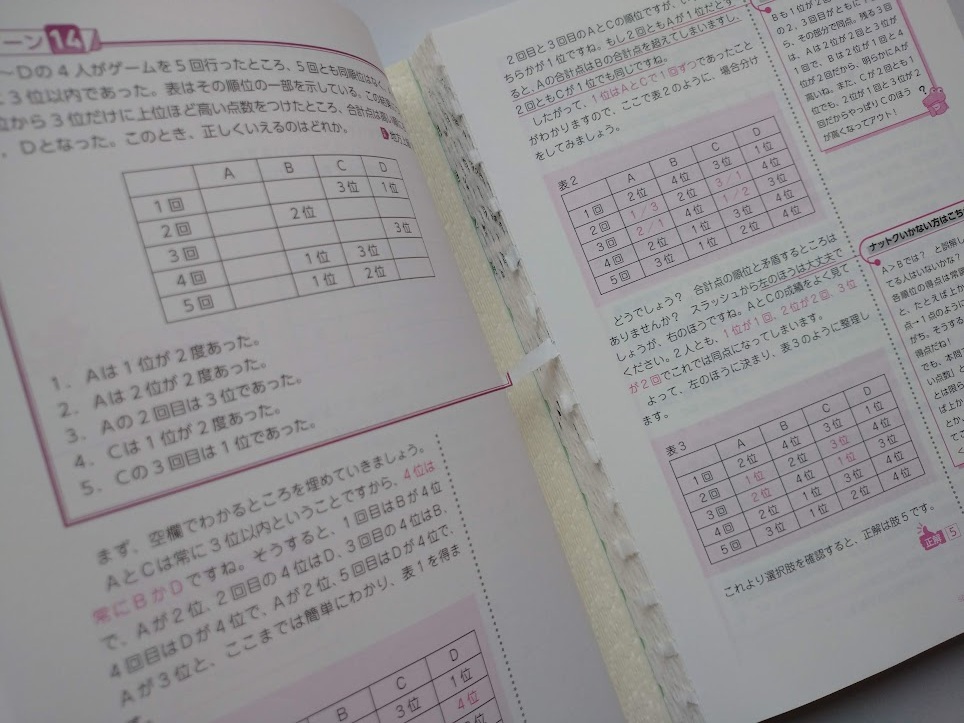 ーン 14
～Dの4人がゲームを5回行ったところ、5回とも同順位はなく
3位以内であった。表はその順位の一部を示している。この結果
位から3位だけに上位ほど高い点数をつけたところ、合計点は高い
、Dとなった。このとき、正しくいえるのはどれか。
A B C D
1回 3位 1位
2回 2位
3回 3位
4回 1位 3位
5回 1位 2位
1. Aは1位が2度あった。
2. Aは2位が2度あった。
3. Aの2回目は3位であった。
4. Cは1位が2度あった。
5. Cの3回目は1位であった。
まず、空欄でわかるところを埋めていきましょう。
AとCは常に3位以内ということですから、4位は
常にBかDですね。そうすると、1回目はBが4位
で、Aが2位、2回目の4位はD、3回目の4位はB、
4回目はDが4位で、Aが2位、5回目はDが4位で、
Aが3位と、ここまでは簡単にわかり、表1を得ま
す。
B C D
3位 1位
4位
2回目と3回目のAとCの順位ですが、
ちらかが1位ですね。もし2回ともAが1位だとす
ると、Aの合計点はBの合計点を超えてしまいますし、
2回ともCが1位でも同じですね。
したがって、1位はAとCで1回ずつであったこと
がわかりますので、ここで表2のように、場合分け
をしてみましょう。
表2
A B C D
1回 2位 4位 3位 1位
2回 1/3 2位 3/1 4位
3回 2/1 4位 1/2 3位
4回 2位 1位 3位 4位
5回 3位 1位 2位 4位
どうでしょう? 合計点の順位と矛盾するところは
ありませんか? スラッシュから左のほうは大丈夫で
しょうが、右のほうですね。AとCの成績をよく見て
ください。2人とも、1位が1回、2位が2回、3位
が2回でこれでは同点になってしまいます。
よって、左のほうに決まり、表3のように整理し
ます。
表3
A B C D
1回 2位 4位 3位 1位
2回 1位 2位 3位 4位
3回 2位 4位 1位 3位
4回 2位 1位 3位 4位
5回 3位 1位 2位 4位
これより選択肢を確認すると、正解は肢5です。
正解 5
Bも1位が2回
の2、3回目がともに
ら、その部分で同点。残る3回
は、Aは2位が2回と3位が
1回で、Bは2位が1回と4
位が2回だから、明らかにAが
高いね。また、Cが2回とも1
位でも、2位が1回と3位が2
回だからやっぱりCのほう
が高くなってアウト!
ナットクいかない方はこち
A>Bでは? と誤解し
てる人はいないかな?
各順位の得点は常識
と、たとえば上か
点→1点のように
がち。そうする
得点だね!
でも、本問
い点数」と
とは限ら
ば上か
とか、
てこ